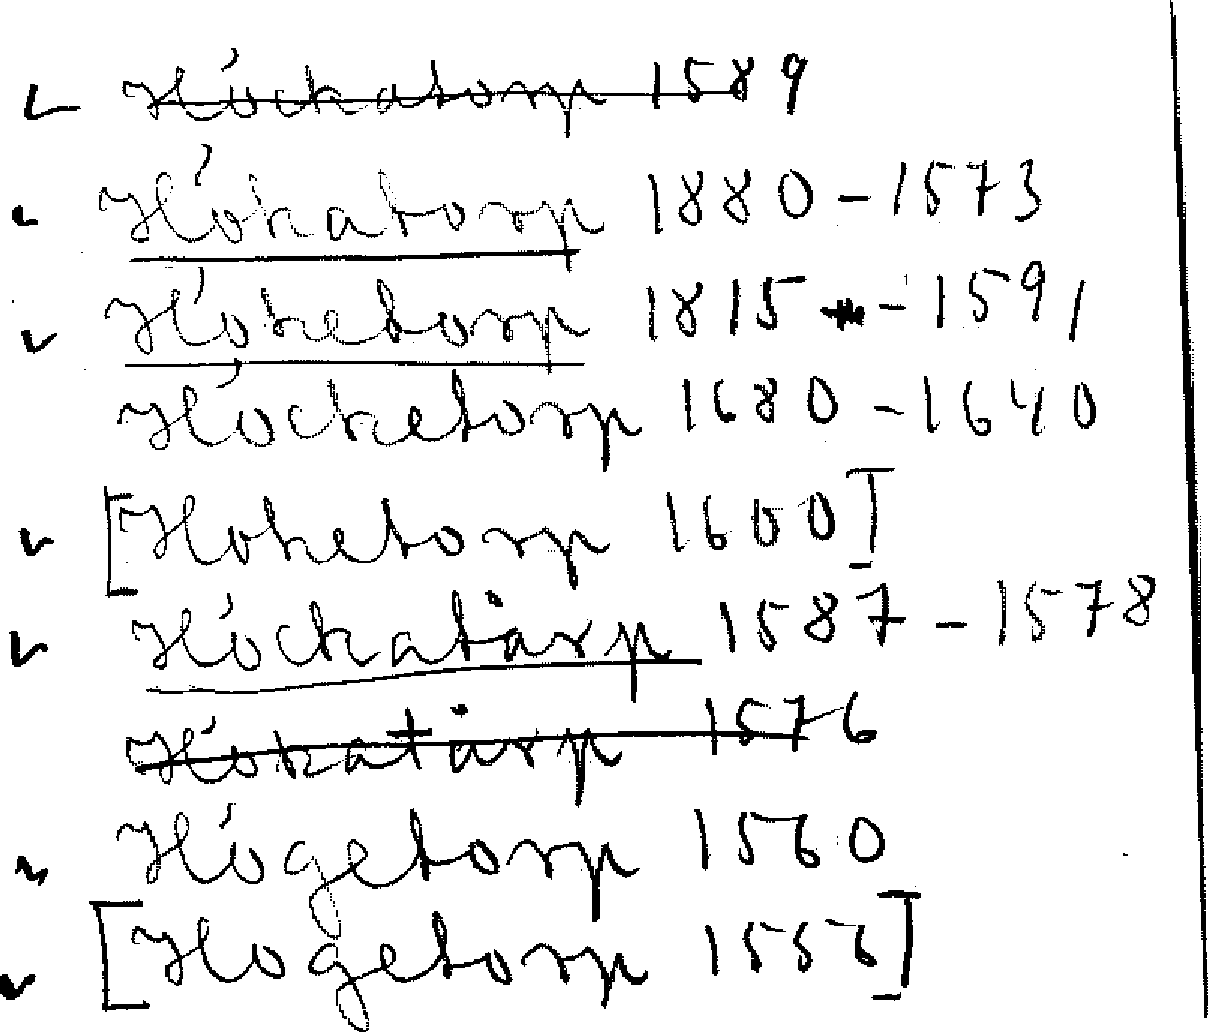 Hóckatorp 1589
Hókatorp 1880 - 1573
Hóketorp 1815 - 1591
Hócketorp 1680 - 1640
[Hoketorp 1600]
Hóckatårp 1587 - 1578
Hókatårp 1576
Hógetorp 1560
[Hogetorp 1556]